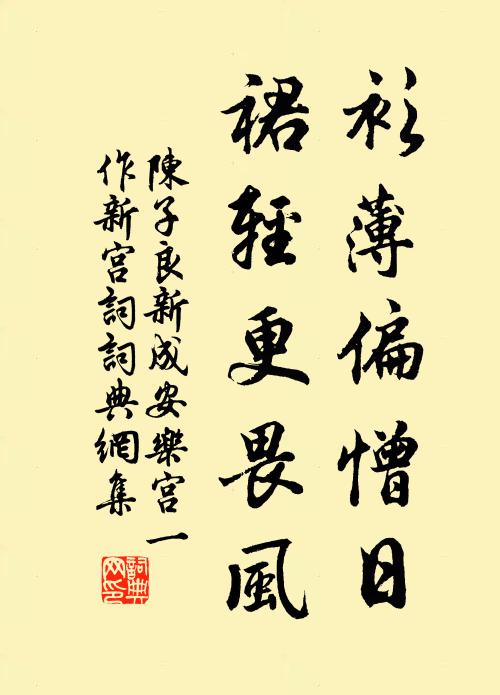 衫薄偏憎日
裙輕更畏風
陳子良新成安樂宮一
作新宮詞詞典網集
詞典
网印